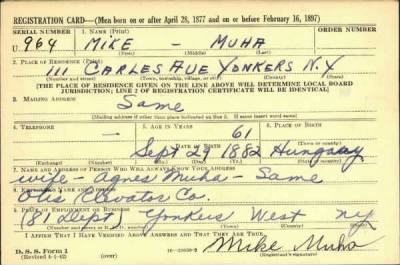 REGISTRATION CARD—(Men born on or after April 28, 1877 and on or before February 16, 1897)
SERIAL NUMBER 1. NAME (Print)
964 MIKE - MUHA
(First) (Middle) (Last)
2. PLACE OF RESIDENCE (Print)
111 CARLES AVE YONKERS N.Y
(Number and street) (Town, township, village, or city) (County) (State)
[THE PLACE OF RESIDENCE GIVEN ON THE LINE ABOVE WILL DETERMINE LOCAL BOARD
JURISDICTION; LINE 2 OF REGISTRATION CERTIFICATE WILL BE IDENTICAL]
3. MAILING ADDRESS
Same
(Mailing address if other than place indicated on line 2. If same insert word same)
4. TELEPHONE 5. AGE IN YEARS 6. PLACE OF BIRTH
- 61
DATE OF BIRTH
Sept 29 1882 Hungray
7. NAME AND ADDRESS OF PERSON WHO WILL ALWAYS KNOW YOUR ADDRESS
wife - Agnes Muha - Same
8. EMPLOYER'S NAME AND ADDRESS
Otis Elevator Co.
9. PLACE OF EMPLOYMENT OR BUSINESS
(81 dept) Yonkers West NY
(Number and street or R. F. D. number) (Town) (County) (State)
I AFFIRM THAT I HAVE VERIFIED ABOVE ANSWERS AND THAT THEY ARE TRUE.
D. S. S. Form 1
(Revised 4-1-42) (over)
Mike Muha
(Registrant's signature)